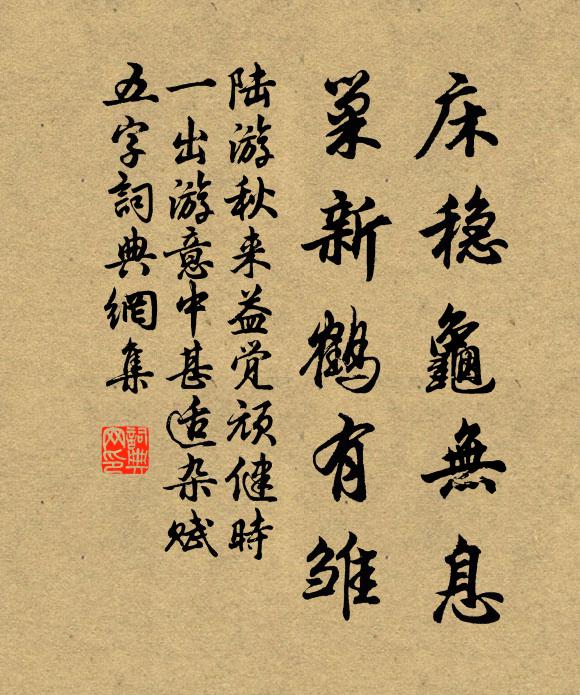 床稳龜無息
巢新鶴有雏
陆游秋来益觉顽健時
一出游意中甚适杂赋
五字詞典網集
詞典
网印